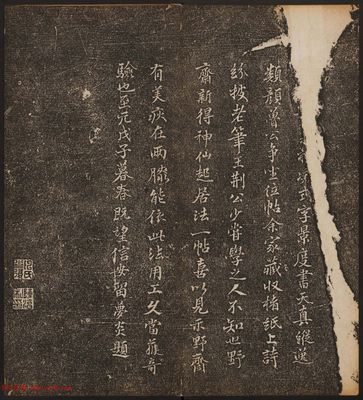 式字景度書天真縱逸
類顏魯公争坐位帖余家藏收楮紙上詩
紛披老筆王荆公少嘗學之人不知也野
齋新得神仙起居法一帖喜以見示野齋
有美疢在兩臁能依此法用工久當獲奇
驗也至元戊子暮春既望信安留夢炎題